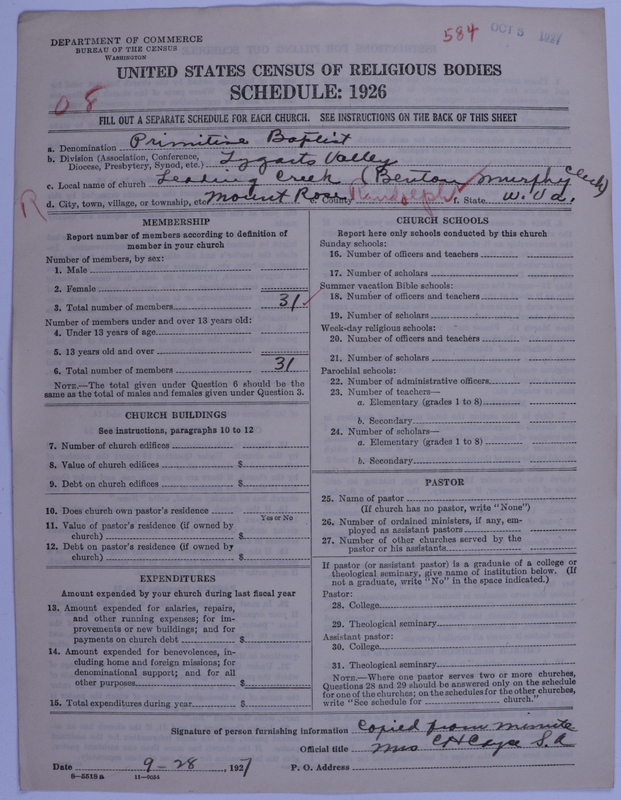 584 OCT 3 1927
DEPARTMENT OF COMMERCE
BUREAU OF THE CENSUS
WASHINGTON
UNITED STATES CENSUS OF RELIGIOUS BODIES
SCHEDULE: 1926
08
FILL OUT A SEPARATE SCHEDULE FOR EACH CHURCH. SEE INSTRUCTIONS ON THE BACK OF THIS SHEET
a. Denomination Primitive Baptist
b. Division (Association, Conference, Diocese, Presbytery, Synod, etc.) Tygarts Valley
c. Local name of church Leading Creek (Benton Murphy Clerk)
R d. City, town, village, or township, etc. Mount Rose e. County Randolph f. State W. Va.
MEMBERSHIP
Report number of members according to definition of
member in your church
Number of members, by sex:
1. Male
2. Female
3. Total number of members 31
Number of members under and over 13 years old:
4. Under 13 years of age
5. 13 years old and over
6. Total number of members 31
NOTE.—The total given under Question 6 should be the
same as the total of males and females given under Question 3.
CHURCH BUILDINGS
See instructions, paragraphs 10 to 12
7. Number of church edifices
8. Value of church edifices $
9. Debt on church edifices $
10. Does church own pastor's residence
Yes or No
11. Value of pastor's residence (if owned by
church) $
12. Debt on pastor's residence (if owned by
church) $
EXPENDITURES
Amount expended by your church during last fiscal year
13. Amount expended for salaries, repairs,
and other running expenses; for im-
provements or new buildings; and for
payments on church debt $
14. Amount expended for benevolences, in-
cluding home and foreign missions; for
denominational support; and for all
other purposes $
15. Total expenditures during year $
CHURCH SCHOOLS
Report here only schools conducted by this church
Sunday schools:
16. Number of officers and teachers
17. Number of scholars
Summer vacation Bible schools:
18. Number of officers and teachers
19. Number of scholars
Week-day religious schools:
20. Number of officers and teachers
21. Number of scholars
Parochial schools:
22. Number of administrative officers
23. Number of teachers—
a. Elementary (grades 1 to 8)
b. Secondary
24. Number of scholars—
a. Elementary (grades 1 to 8)
b. Secondary
PASTOR
25. Name of pastor
(If church has no pastor, write "None")
26. Number of ordained ministers, if any, em-
ployed as assistant pastors
27. Number of other churches served by the
pastor or his assistants
If pastor (or assistant pastor) is a graduate of a college or
theological seminary, give name of institution below. (If
not a graduate, write "No" in the space indicated.)
Pastor:
28. College
29. Theological seminary
Assistant pastor:
30. College
31. Theological seminary
NOTE.—Where one pastor serves two or more churches,
Questions 28 and 29 should be answered only on the schedule
for one of the churches; on the schedules for the other churches,
write "See schedule for church."
Signature of person furnishing information Copied from minute
Official title Mrs C H Cayce S.A
Date 9-28, 1927 P. O. Address
8—5518a 11—9034